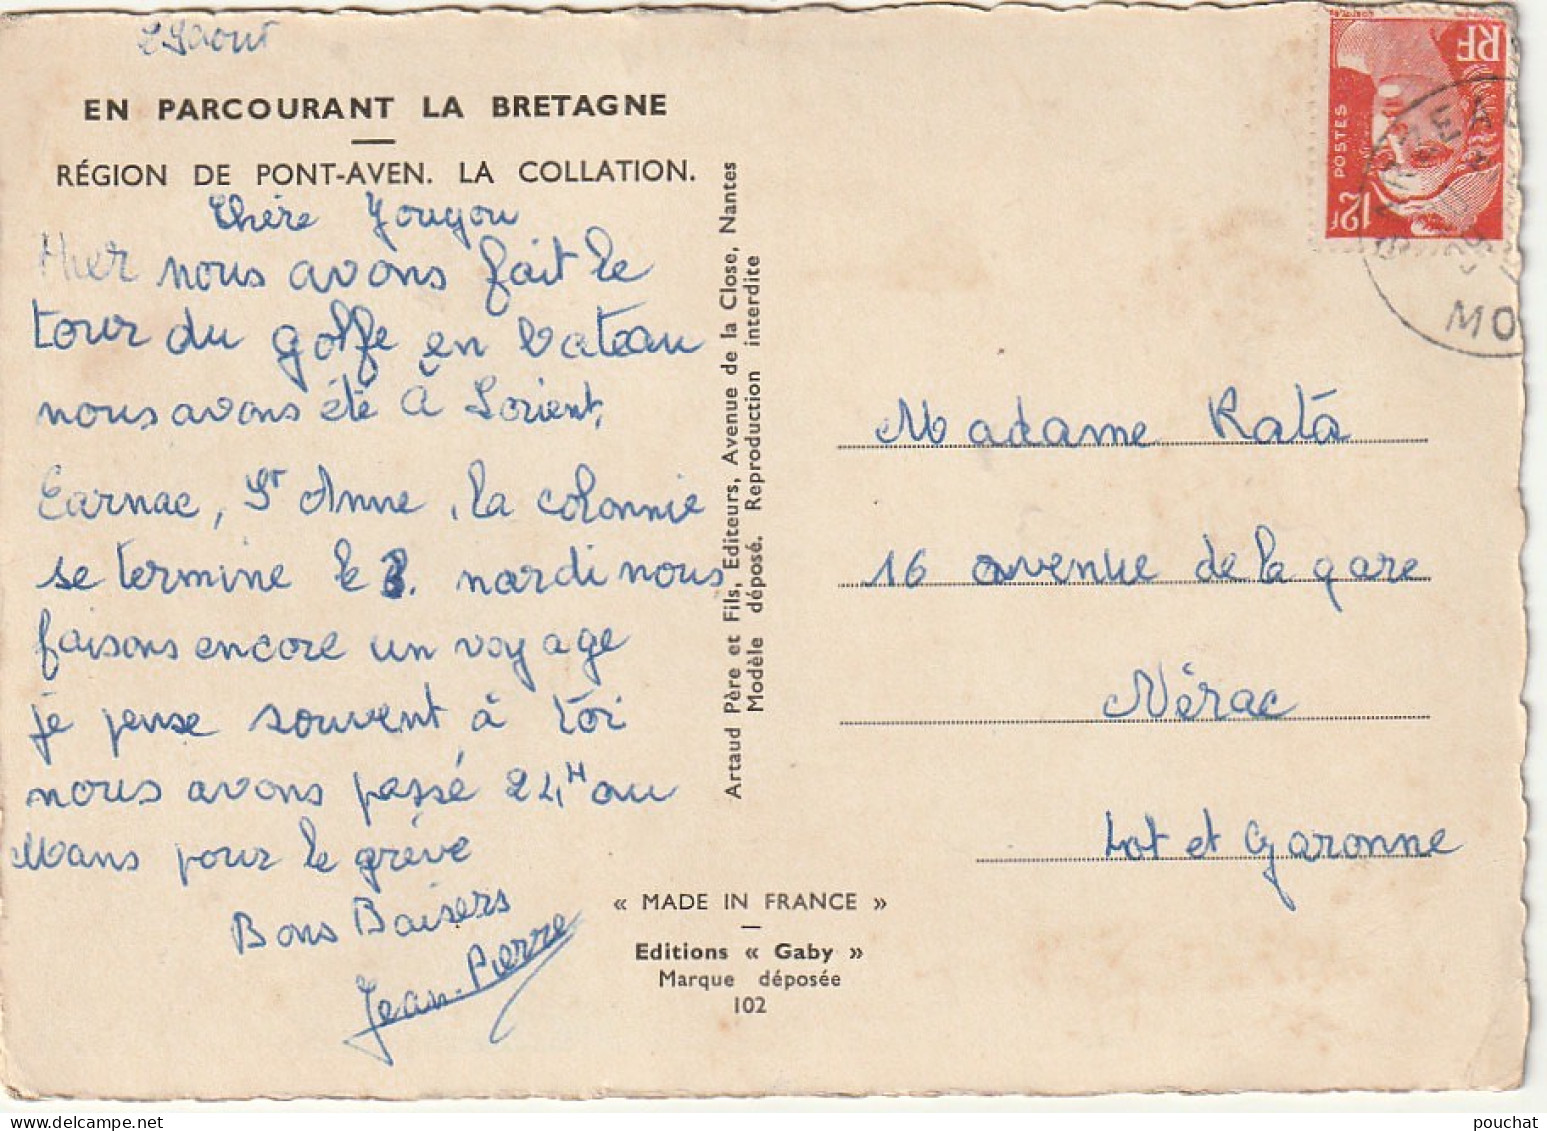 Août
EN PARCOURANT LA BRETAGNE
RÉGION DE PONT-AVEN. LA COLLATION.
Chère Yougou
Hier nous avons fait le
tour du golfe en bateau
nous avons été à Lorient,
Carnac, St Anne, la colonnie
se termine le nardi nous
faisons encore un voyage
je pense souvent à toi
nous avons passé 24H au
Mans pour le grève
Bons Baisers
Jean-Pierre
Artaud Père et Fils, Editeurs, Avenue de la Close, Nantes
Modèle déposé. Reproduction interdite
« MADE IN FRANCE »
Editions « Gaby »
Marque déposée
102
RF
POSTES
12F
SARZEAU
MO
Madame Rata
16 avenue de la gare
Nérac
Lot et Garonne
pouchat